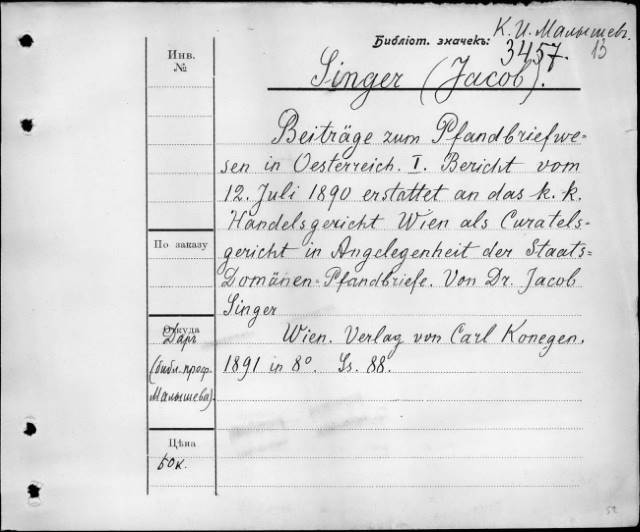 К. И. Малышев.
Библіот. значекъ: 3457. 13
Инв. №
Singer (Jacob).
Beiträge zum Pfandbriefwe-
sen in Oesterreich. I. Bericht vom
12. Juli 1890 erstattet an das k. k.
Handelsgericht Wien als Curatels-
По заказу
gericht in Angelegenheit der Staats-
Domänen-Pfandbriefe. Von Dr. Jacob
Singer
Откуда
Даръ
(библ. проф.
Малышева).
Wien. Verlag von Carl Konegen.
1891 in 8°. Ss. 88.
Цѣна
50к.
52